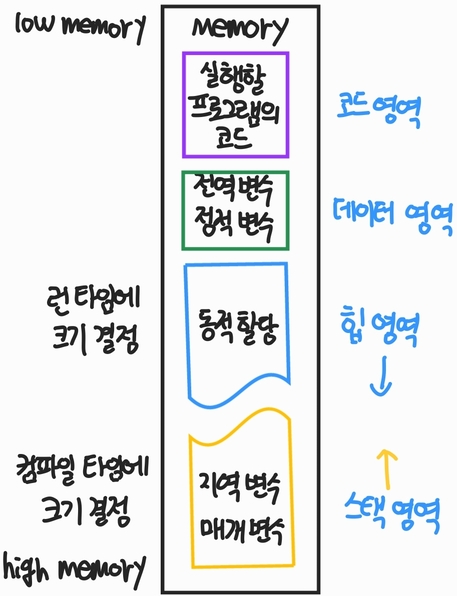 low memory
memory
실행할
프로그램의
코드
코드 영역
전역 변수
정적 변수
데이터 영역
런 타임에
크기 결정
동적 할당
힙 영역
컴파일 타임에
크기 결정
지역 변수
매개 변수
스택 영역
high memory